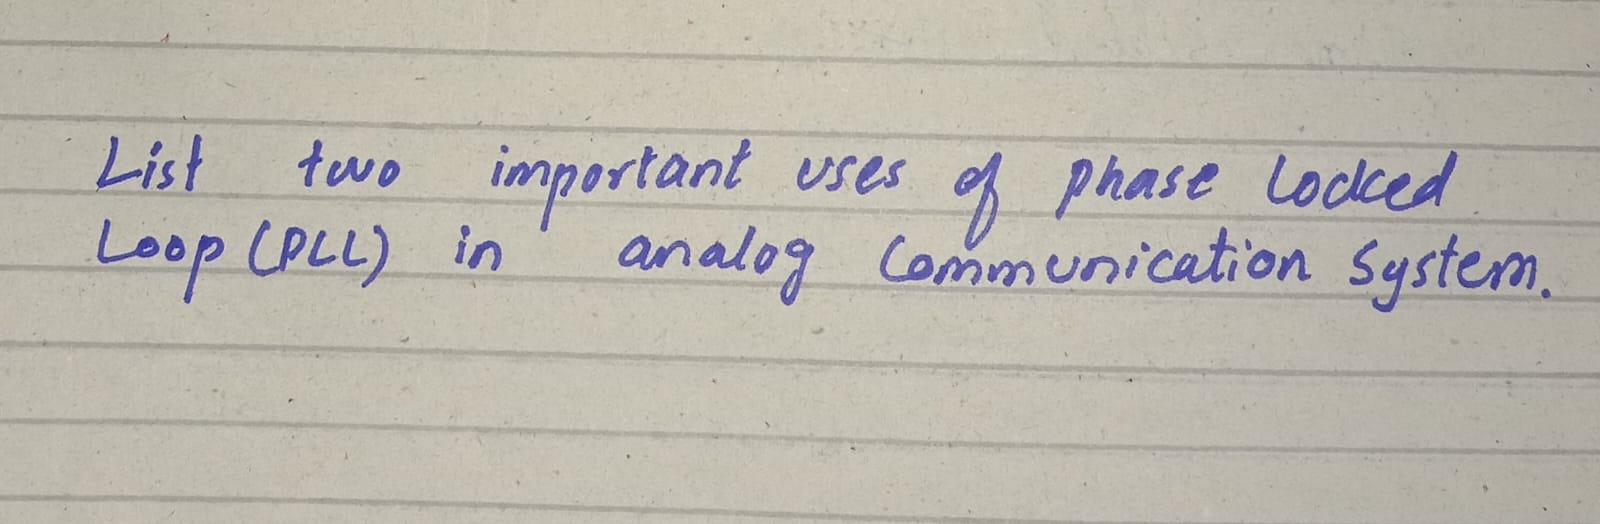 List two important uses of phase Locked
Loop (PLL) in analog Communication System.